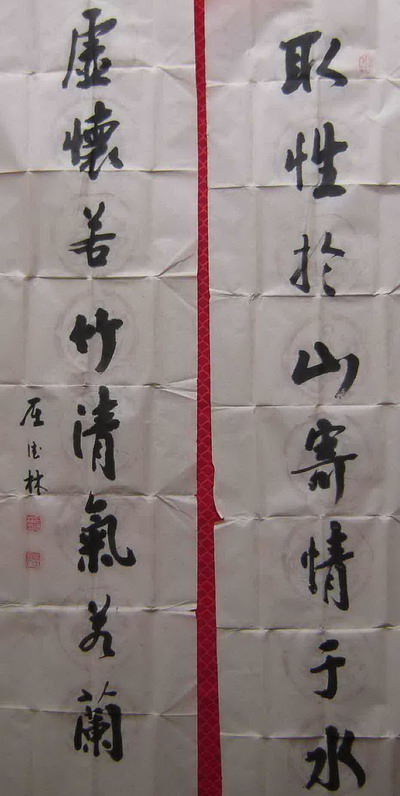 取性於山寄情于水
虛懷若竹清氣若蘭
德林